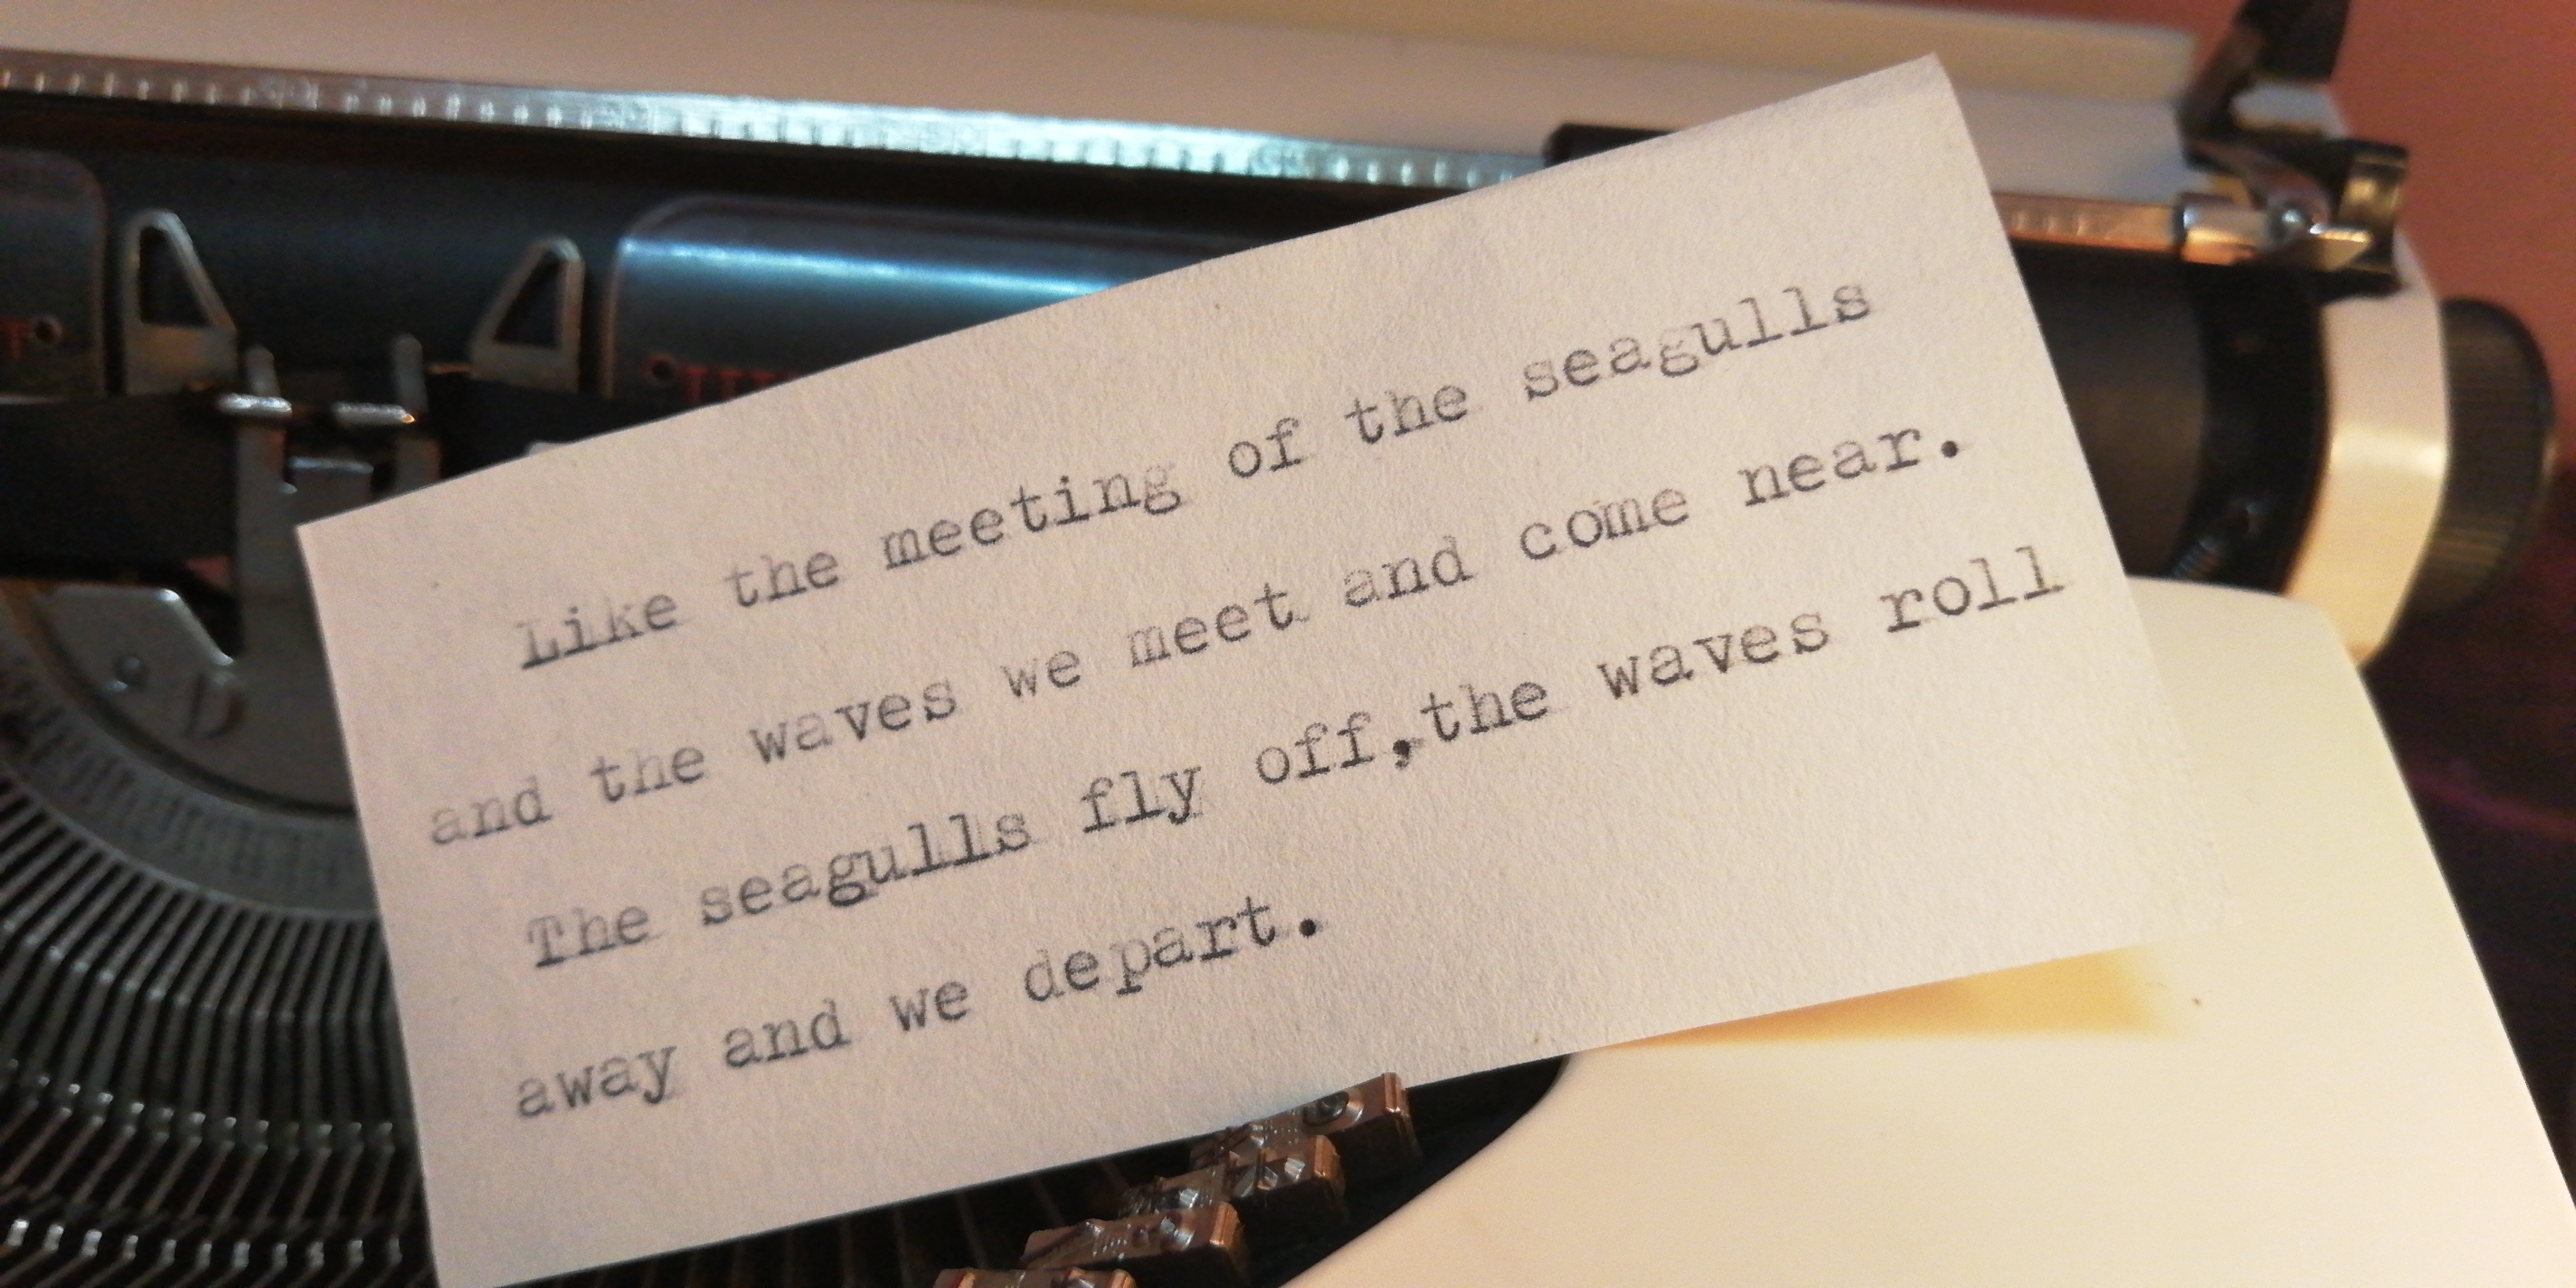 Like the meeting of the seagulls
and the waves we meet and come near.
The seagulls fly off,the waves roll
away and we depart.